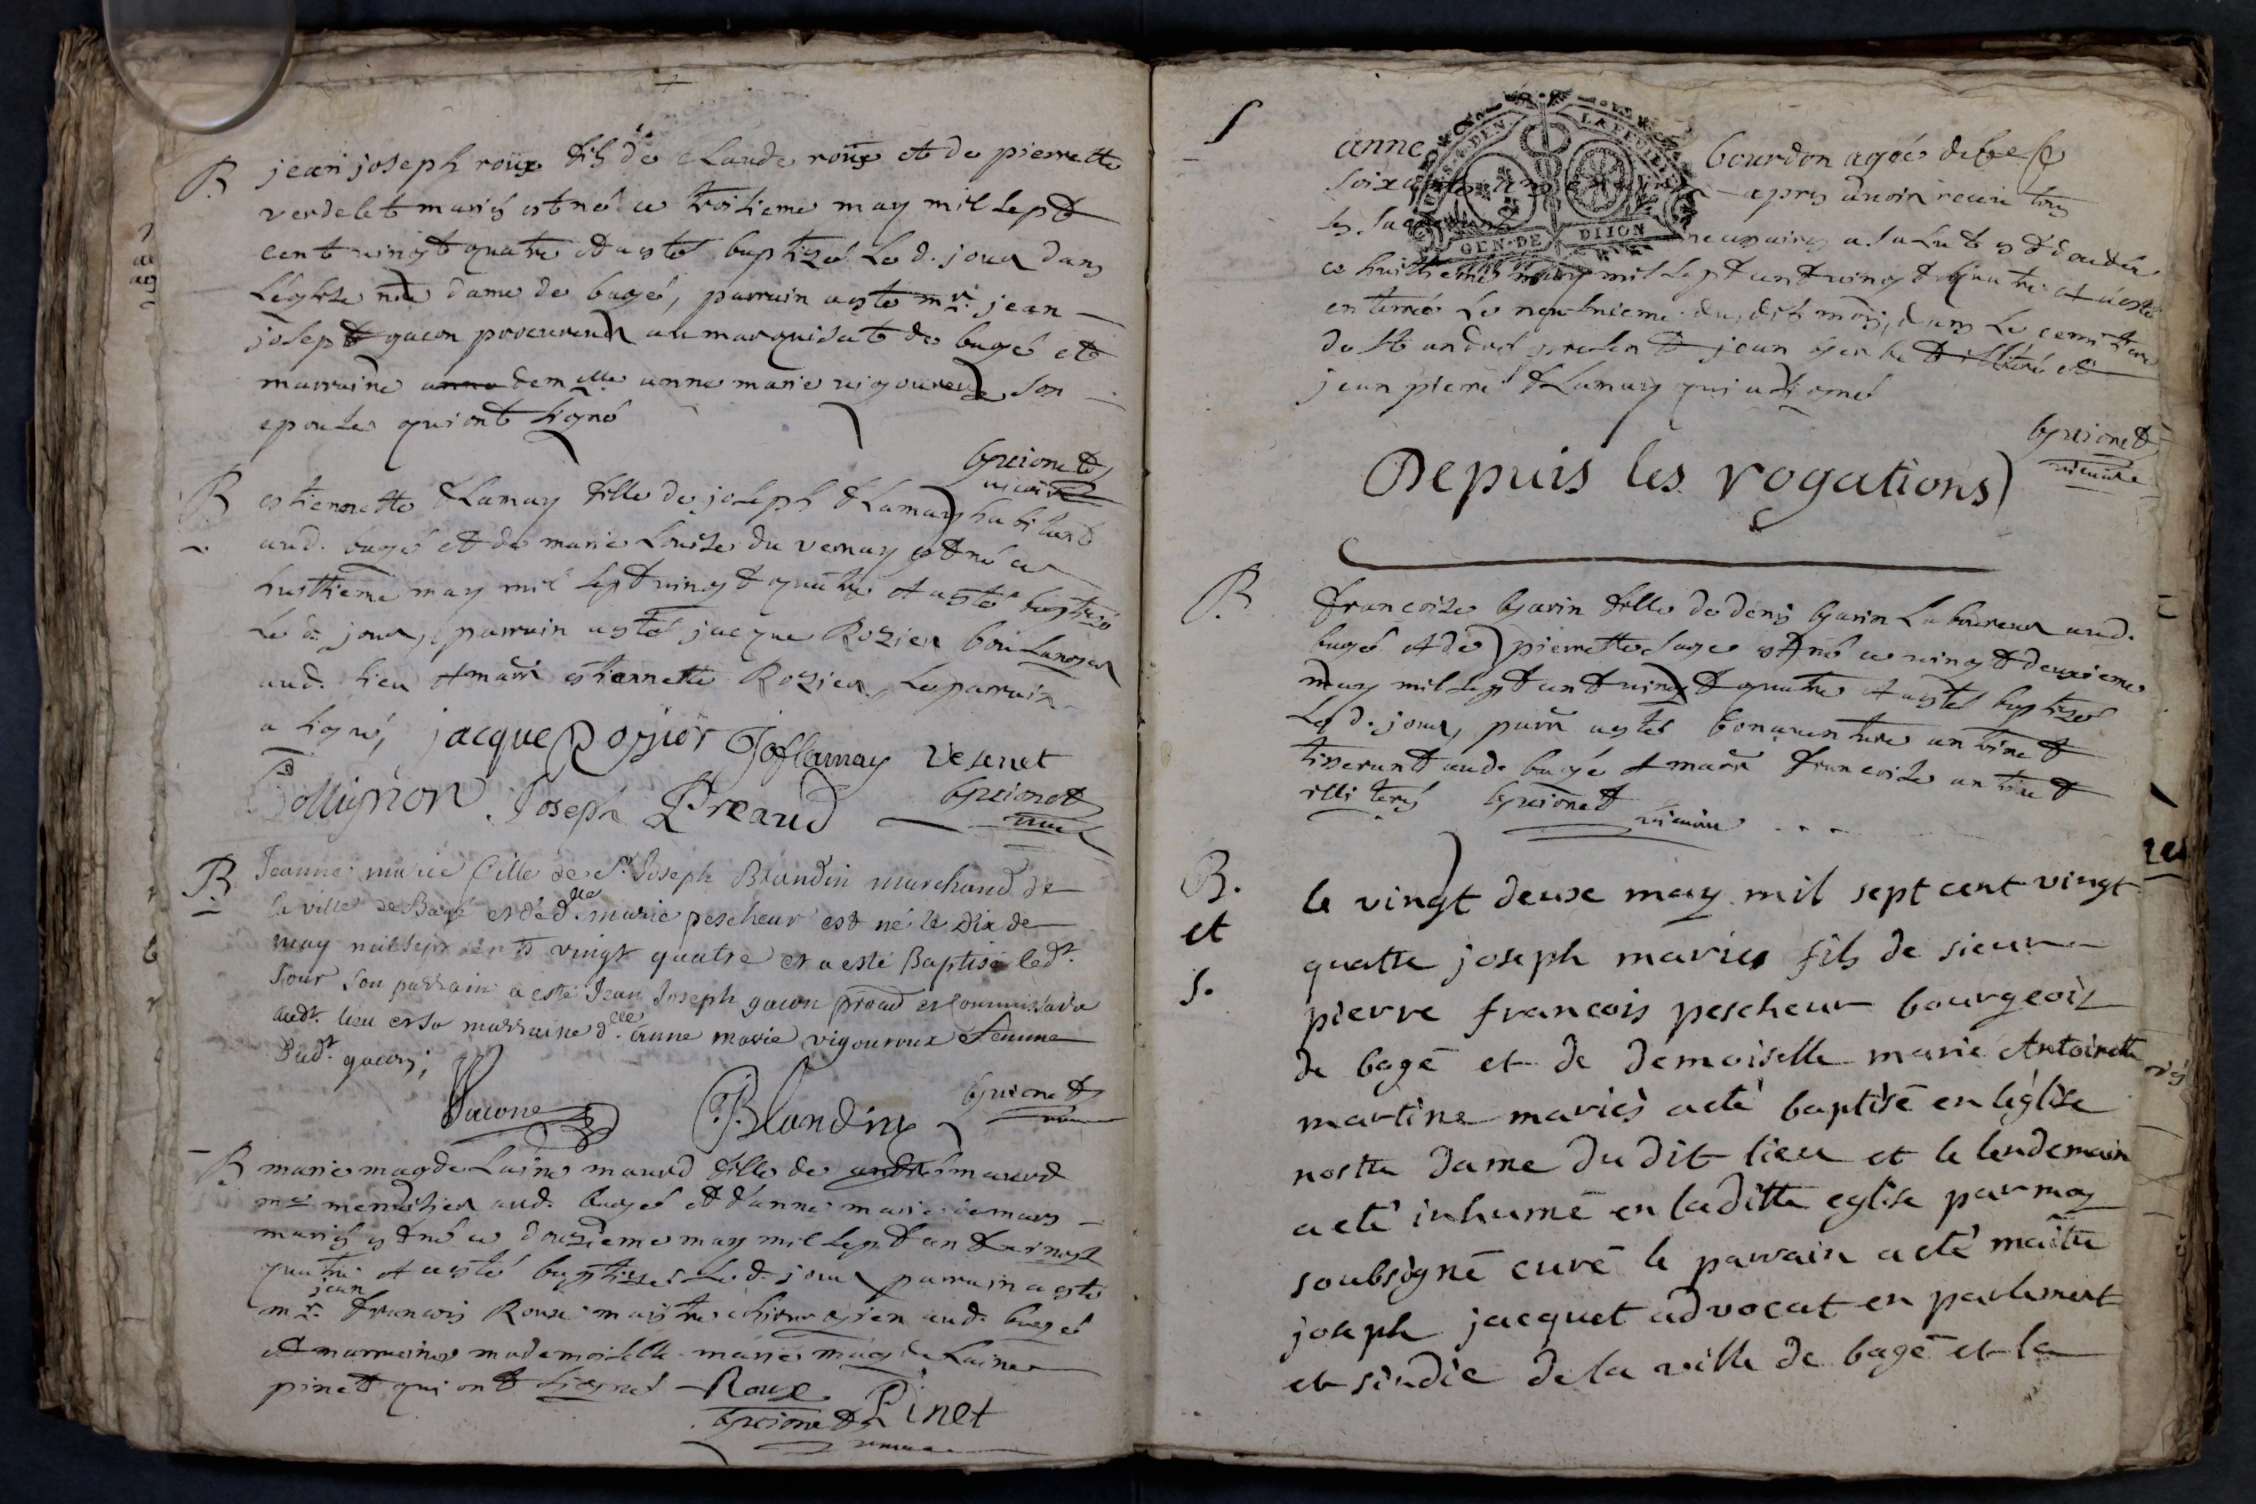 B jean joseph roux fils de Claude roux et de pierrette
verdelet mariés est né ce troisieme may mil sept
cent vingt quatre et a esté baptizé le d. jour dans
l'eglise nre dame de bagé, parrain a esté mr. jean
joseph gacon procureur au marquisat de bagé et
marraine anne demelle anne marie vigoureux son
epouse qui ont signé
guionet
vicaire
B estiennette flamay fille de joseph flamay habitant
aud. bagé et de marie Louise du vernay est né ce
huittieme may mil sept vingt quatre et a esté baptizé
le d. jour, parrain a esté jacque Rozier boulanger
aud. lieu et marr estiennette Rozier, le parrain
a signé, jacque Rosier Josflamay vesenet
Collignon Joseph Preaud guionet
vicaire
B Jeanne marie fille de Sr. Joseph Blandin marchand de
la ville de Bagé et de dlle marie pescheur est né le dix de
may mil sept cents vingt quatre et a esté Baptisé ledt.
Jour son parrain a esté Jean Joseph gacon
audt. lieu et sa marraine dlle. anne marie vigouroux femme
dudt. gacon;
Gacone Blandin guionet
B marie magdelaine maurd fille de andré maurd
mre menusier aud. bagé et d'anne marie
mariés est né ce douzieme may mil sept cent vingt
quatre et a esté baptizé le d. jour parrain a esté
jean
mr. francois Roux maistre chirurgien aud. bagé
et marraine mademoiselle marie magdelaine
pinet qui ont signé Roux
guionet Pinet
vicaire
S anne bourdon agée de
soixante ans apres avoir receu tous
les sacrements necessaires a salut est decedée
GEN·DE DIJON
ce huittieme may mil sept cent vingt quatre et a esté
enterré le neufvieme dudit mois, dans le cemittiere
de St andré present jean illiteré et
jean pierre flamay qui a signé
guionet
vicaire
Depuis les rogations
B francoise garin fille de denis garin laboureur aud.
bagé et de pierrette sage est né ce vingt deuxieme
may mil sept cent vingt quatre et a esté baptizé
le d. jour, parr a esté bonaventure antinet
tisserand aud. bagé et marr francoise antinet
illiterés guionet vicaire
B. le vingt deux may mil sept cent vingt
et quattre joseph maries fils de sieur
S. pierre francois pescheur bourgeois
de bagé et de demoiselle marie Antoinette
martine mariés a eté baptisé en leglise
nostre dame dudit lieu et le lendemain
a eté inhumé en laditte eglise par moy
soubsigné curé le parrain a eté maitre
joseph jacquet advocat en parlement
et sindic de la ville de bagé et la